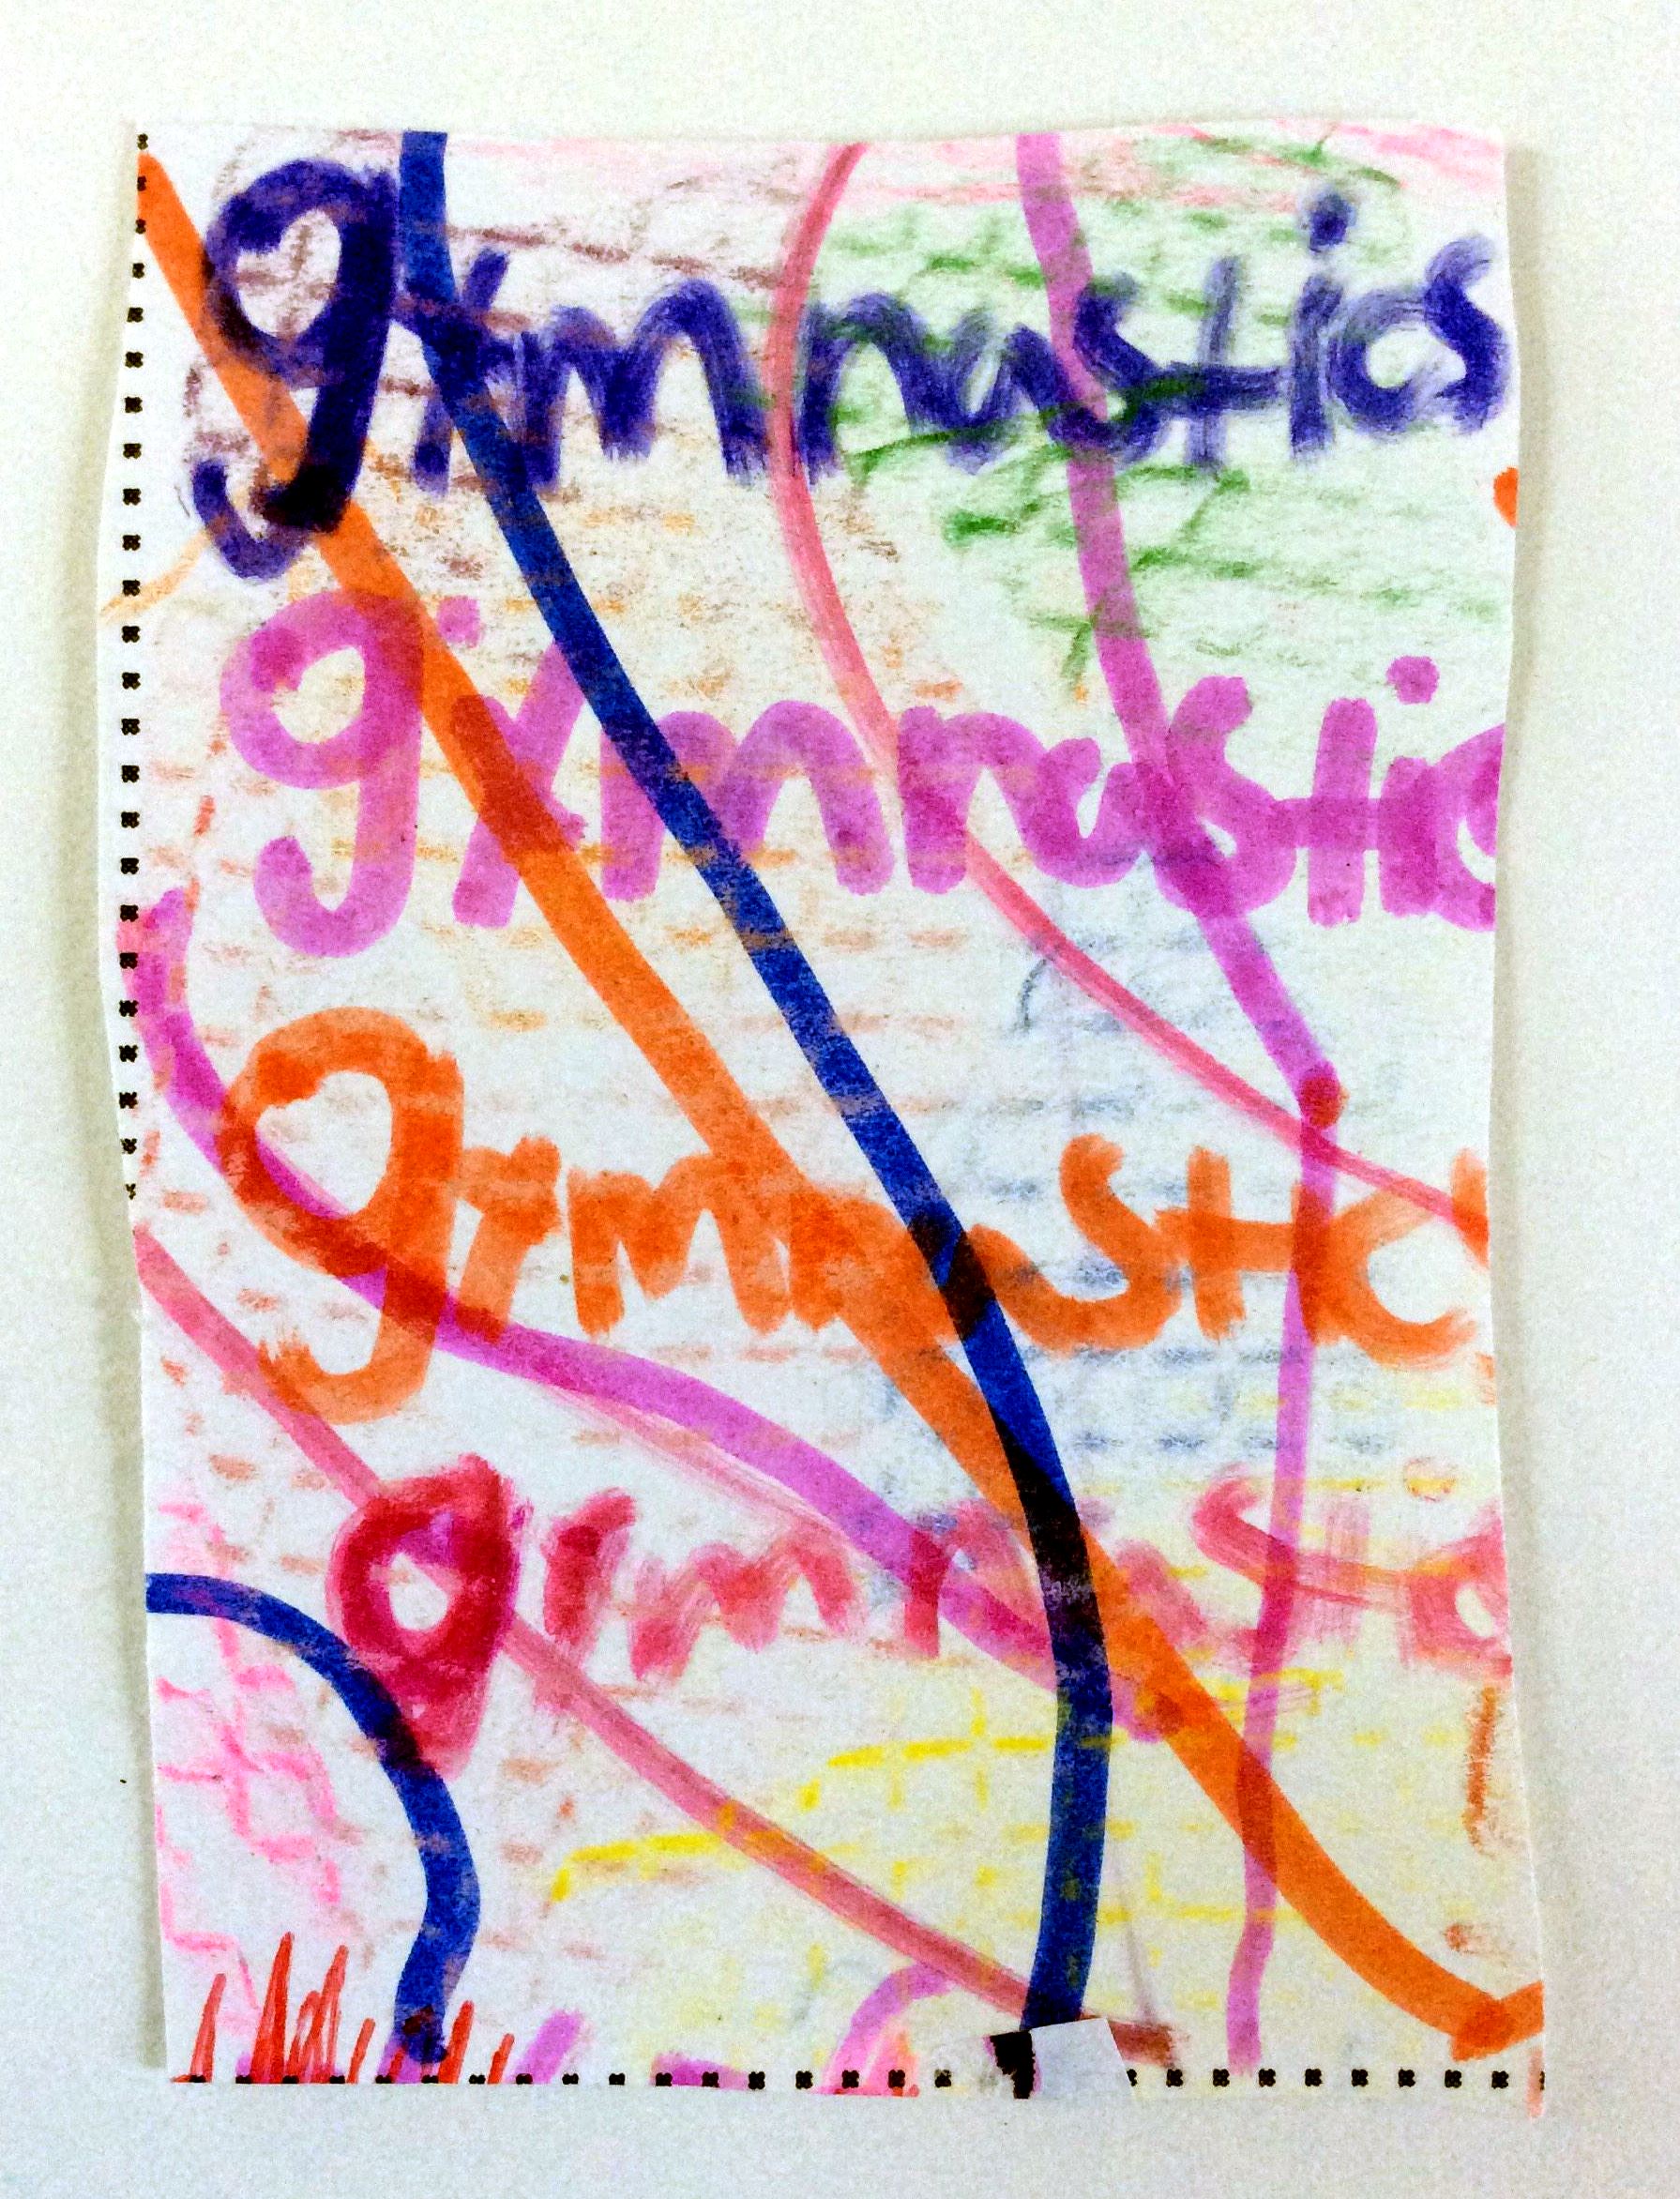 gymnastics
gymnastic
gymnastc
gymnastc